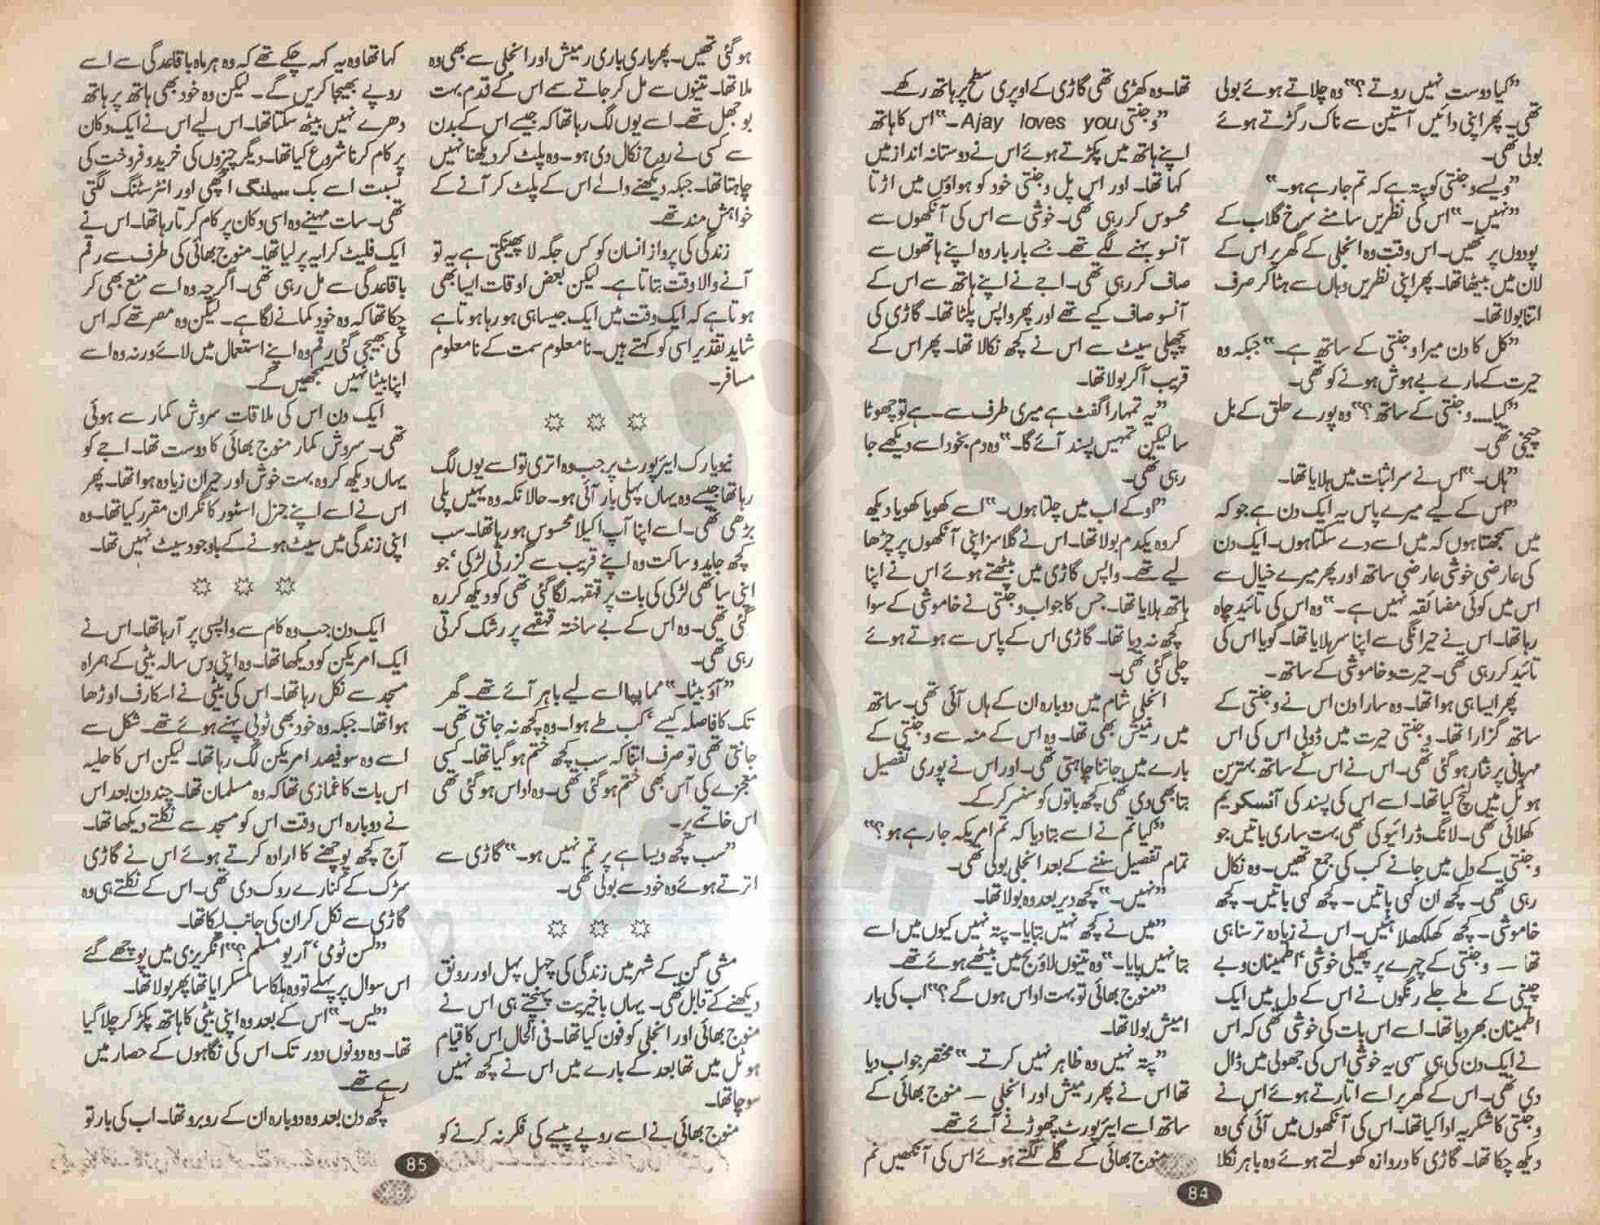 ”کیا دوست نہیں روتے؟“ وہ چلاتے ہوئے بولی
تھی۔ پھر اپنی دائیں آستین سے ناک رگڑتے ہوئے
بولی تھی۔
”ویسے وجنتی کو پتہ ہے کہ تم جا رہے ہو۔“
”نہیں۔“ اس کی نظریں سامنے سرخ گلاب کے
پودوں پر تھیں۔ اس وقت وہ انجلی کے گھر پر اس کے
لان میں بیٹھا تھا۔ پھر اپنی نظریں وہاں سے ہٹا کر صرف
اتنا بولا تھا۔
”کل کا دن میرا وجنتی کے ساتھ ہے۔“ جبکہ وہ
حیرت کے مارے بے ہوش ہونے کو تھی۔
”کیا.... وجنتی کے ساتھ؟“ وہ پورے حلق کے بل
چیخی تھی۔
”ہاں۔“ اس نے سر اثبات میں ہلایا تھا۔
”اس کے لیے میرے پاس یہ ایک دن ہے جو کہ
میں سمجھتا ہوں کہ میں اسے دے سکتا ہوں۔ ایک دن
کی عارضی خوشی عارضی ساتھ اور پھر میرے خیال سے
اس میں کوئی مضائقہ نہیں ہے۔“ وہ اس کی تائید چاہ
رہا تھا۔ اس نے حیرانگی سے اپنا سر ہلایا تھا۔ گویا اس کی
تائید کر رہی تھی۔ حیرت و خاموشی کے ساتھ۔
پھر ایسا ہی ہوا تھا۔ وہ سارا دن اس نے وجنتی کے
ساتھ گزارا تھا۔ وجنتی حیرت میں ڈوبی اس کی اس
مہربانی پر نثار ہو گئی تھی۔ اس نے اس کے ساتھ بہترین
ہوٹل میں لنچ کیا تھا۔ اسے اس کی پسند کی آئسکریم
کھلائی تھی۔ لانگ ڈرائیو کی تھی بہت ساری باتیں جو
وجنتی کے دل میں جانے کب کی جمع تھیں۔ وہ نکال
رہی تھی۔ کچھ ان کہی باتیں۔ کچھ کہی باتیں۔ کچھ
خاموشی۔ کچھ کھلکھلاہٹیں۔ اس نے زیادہ تر سنا ہی
تھا — وجنتی کے چہرے پر پھیلی خوشی‘ اطمینان و بے
چینی کے ملے جلے رنگوں نے اس کے دل میں ایک
اطمینان بھر دیا تھا۔ اسے اس بات کی خوشی تھی کہ اس
نے ایک دن کی ہی سہی یہ خوشی اس کی جھولی میں ڈال
دی تھی۔ اس کے گھر پر اسے اتارتے ہوئے اس نے
وجنتی کا شکریہ ادا کیا تھا۔ اس کی آنکھوں میں آئی نمی وہ
دیکھ چکا تھا۔ گاڑی کا دروازہ کھولتے ہوئے وہ باہر نکلا
تھا۔ وہ کھڑی تھی گاڑی کے اوپری سطح پر ہاتھ رکھے۔
”وجنتی Ajay loves you۔“ اس کا ہاتھ
اپنے ہاتھ میں پکڑتے ہوئے اس نے دوستانہ انداز میں
کہا تھا۔ اور اس پل وجنتی خود کو ہواؤں میں اڑتا
محسوس کر رہی تھی۔ خوشی سے اس کی آنکھوں سے
آنسو بہنے لگے تھے۔ جسے بار بار وہ اپنے ہاتھوں سے
صاف کر رہی تھی۔ اجے نے اپنے ہاتھ سے اس کے
آنسو صاف کیے تھے اور پھر واپس پلٹا تھا۔ گاڑی کی
پچھلی سیٹ سے اس نے کچھ نکالا تھا۔ پھر اس کے
قریب آ کر بولا تھا۔
”یہ تمہارا گفٹ ہے میری طرف سے۔ ہے تو چھوٹا
سا لیکن تمہیں پسند آئے گا۔“ وہ دم بخود اسے دیکھے جا
رہی تھی۔
”اوکے اب میں چلتا ہوں۔“ اسے کھویا کھویا دیکھ
کر وہ یکدم بولا تھا۔ اس نے گلاسز اپنی آنکھوں پر چڑھا
لیے تھے۔ واپس گاڑی میں بیٹھتے ہوئے اس نے اپنا
ہاتھ ہلایا تھا۔ جس کا جواب وجنتی نے خاموشی کے سوا
کچھ نہ دیا تھا۔ گاڑی اس کے پاس سے ہوتے ہوئے
چلی گئی تھی۔
انجلی شام میں دوبارہ ان کے ہاں آئی تھی۔ ساتھ
میں رمیش بھی تھا۔ وہ اس کے منہ سے وجنتی کے
بارے میں جاننا چاہتی تھی۔ اور اس نے پوری تفصیل
بتا بھی دی تھی کچھ باتوں کو سنسر کر کے۔
”کیا تم نے اسے بتا دیا کہ تم امریکہ جا رہے ہو؟“
تمام تفصیل سننے کے بعد انجلی بولی تھی۔
”نہیں۔“ کچھ دیر بعد وہ بولا تھا۔
”میں نے کچھ نہیں بتایا۔ پتہ نہیں کیوں میں اسے
بتا نہیں پایا۔“ وہ تینوں لاؤنج میں بیٹھے ہوئے تھے۔
”منوج بھائی تو بہت اداس ہوں گے؟“ اب کی بار
امیش بولا تھا۔
”پتہ نہیں وہ ظاہر نہیں کرتے۔“ مختصر جواب دیا
تھا اس نے پھر رمیش اور انجلی — منوج بھائی کے
ساتھ اسے ایئرپورٹ چھوڑنے آئے تھے۔
منوج بھائی کے گلے لگتے ہوئے اس کی آنکھیں نم
84
ہو گئی تھیں۔ پھر باری باری رمیش اور انجلی سے بھی وہ
ملا تھا۔ تینوں سے مل کر جاتے سے اس کے قدم بہت
بوجھل تھے۔ اسے یوں لگ رہا تھا کہ جیسے اس کے بدن
سے کسی نے روح نکال دی ہو۔ وہ پلٹ کر دیکھنا نہیں
چاہتا تھا۔ جبکہ دیکھنے والے اس کے پلٹ کر آنے کے
خواہش مند تھے۔
زندگی کی پرواز انسان کو کس جگہ لا پھینکتی ہے یہ تو
آنے والا وقت بتاتا ہے۔ لیکن بعض اوقات ایسا بھی
ہوتا ہے کہ ایک وقت میں ایک جیسا ہی ہو رہا ہوتا ہے
شاید تقدیر اسی کو کہتے ہیں۔ نامعلوم سمت کے نامعلوم
مسافر۔
نیویارک ایئرپورٹ پر جب وہ اتری تو اسے یوں لگ
رہا تھا جیسے وہ یہاں پہلی بار آئی ہو۔ حالانکہ وہ یہیں پلی
بڑھی تھی۔ اسے اپنا آپ اکیلا محسوس ہو رہا تھا۔ سب
کچھ جامد و ساکت وہ اپنے قریب سے گزرتی لڑکی‘ جو
اپنی ساتھی لڑکی کی بات پر قہقہہ لگا گئی تھی کو دیکھ کر رہ
گئی تھی۔ وہ اس کے بے ساختہ قہقہے پر رشک کرتی
رہی تھی۔
”آؤ بیٹا۔“ مما پاپا اسے لیے باہر آئے تھے۔ گھر
تک کا فاصلہ کیسے‘ کب طے ہوا۔ وہ کچھ نہ جانتی تھی۔
جانتی تھی تو صرف اتنا کہ سب کچھ ختم ہو گیا تھا۔ کسی
معجزے کی آس بھی ختم ہو گئی تھی۔ وہ اداس ہو گئی تھی
اس خاتمے پر۔
”سب کچھ ویسا ہے پر تم نہیں ہو۔“ گاڑی سے
اترتے ہوئے وہ خود سے بولی تھی۔
مشی گن کے شہر میں زندگی کی چہل پہل اور رونق
دیکھنے کے قابل تھی۔ یہاں باخیریت پہنچتے ہی اس نے
منوج بھائی اور انجلی کو فون کیا تھا۔ فی الحال اس کا قیام
ہوٹل میں تھا بعد کے بارے میں اس نے کچھ نہیں
سوچا تھا۔
منوج بھائی نے اسے روپے پیسے کی فکر نہ کرنے کو
کہا تھا وہ یہ کہہ چکے تھے کہ وہ ہر ماہ باقاعدگی سے اسے
روپے بھیجا کریں گے۔ لیکن وہ خود بھی ہاتھ پر ہاتھ
دھرے نہیں بیٹھ سکتا تھا۔ اس لیے اس نے ایک دکان
پر کام کرنا شروع کیا تھا۔ دیگر چیزوں کی خرید و فروخت کی
نسبت اسے بک سیلنگ اچھی اور انٹرسٹنگ لگتی
تھی۔ سات مہینے وہ اسی دکان پر کام کرتا رہا تھا۔ اس نے
ایک فلیٹ کرایہ پر لیا تھا۔ منوج بھائی کی طرف سے رقم
باقاعدگی سے مل رہی تھی۔ اگرچہ وہ اسے منع بھی کر
چکا تھا کہ وہ خود کمانے لگا ہے۔ لیکن وہ مصر تھے کہ اس
کی بھیجی گئی رقم وہ اپنے استعمال میں لائے ورنہ وہ اسے
اپنا بیٹا نہیں سمجھیں گے۔
ایک دن اس کی ملاقات سروش کمار سے ہوئی
تھی۔ سروش کمار منوج بھائی کا دوست تھا۔ اجے کو
یہاں دیکھ کر وہ بہت خوش اور حیران زیادہ ہوا تھا۔ پھر
اس نے اسے اپنے جنرل اسٹور کا نگران مقرر کیا تھا۔ وہ
اپنی زندگی میں سیٹ ہونے کے باوجود سیٹ نہیں تھا۔
ایک دن جب وہ کام سے واپسی پر آ رہا تھا۔ اس نے
ایک امریکن کو دیکھا تھا۔ وہ اپنی دس سالہ بیٹی کے ہمراہ
مسجد سے نکل رہا تھا۔ اس کی بیٹی نے اسکارف اوڑھا
ہوا تھا۔ جبکہ وہ خود بھی ٹوپی پہنے ہوئے تھے۔ شکل سے
اسے وہ سو فیصد امریکن لگ رہا تھا۔ لیکن اس کا حلیہ
اس بات کا غمازی تھا کہ وہ مسلمان تھا۔ چند دن بعد اس
نے دوبارہ اس وقت اس کو مسجد سے نکلتے دیکھا تھا۔
آج کچھ پوچھنے کا ارادہ کرتے ہوئے اس نے گاڑی
سڑک کے کنارے روک دی تھی۔ اس کے نکلتے ہی وہ
گاڑی سے نکل کر ان کی جانب لپکا تھا۔
”لسن ٹومی‘ آر یو مسلم؟“ انگریزی میں پوچھے گئے
اس سوال پر پہلے تو وہ ہلکا سا مسکرایا تھا پھر بولا تھا۔
”یس۔“ اس کے بعد وہ اپنی بیٹی کا ہاتھ پکڑ کر چلا گیا
تھا۔ وہ دونوں دور تک اس کی نگاہوں کے حصار میں
رہے تھے۔
کچھ دن بعد وہ دوبارہ ان کے روبرو تھا۔ اب کی بار تو
85